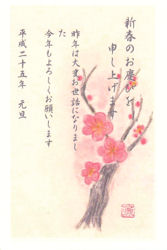 新春のお慶びを
申し上げます
昨年は大変お世話になりまし
た
今年もよろしくお願いします
平成二十五年　元旦